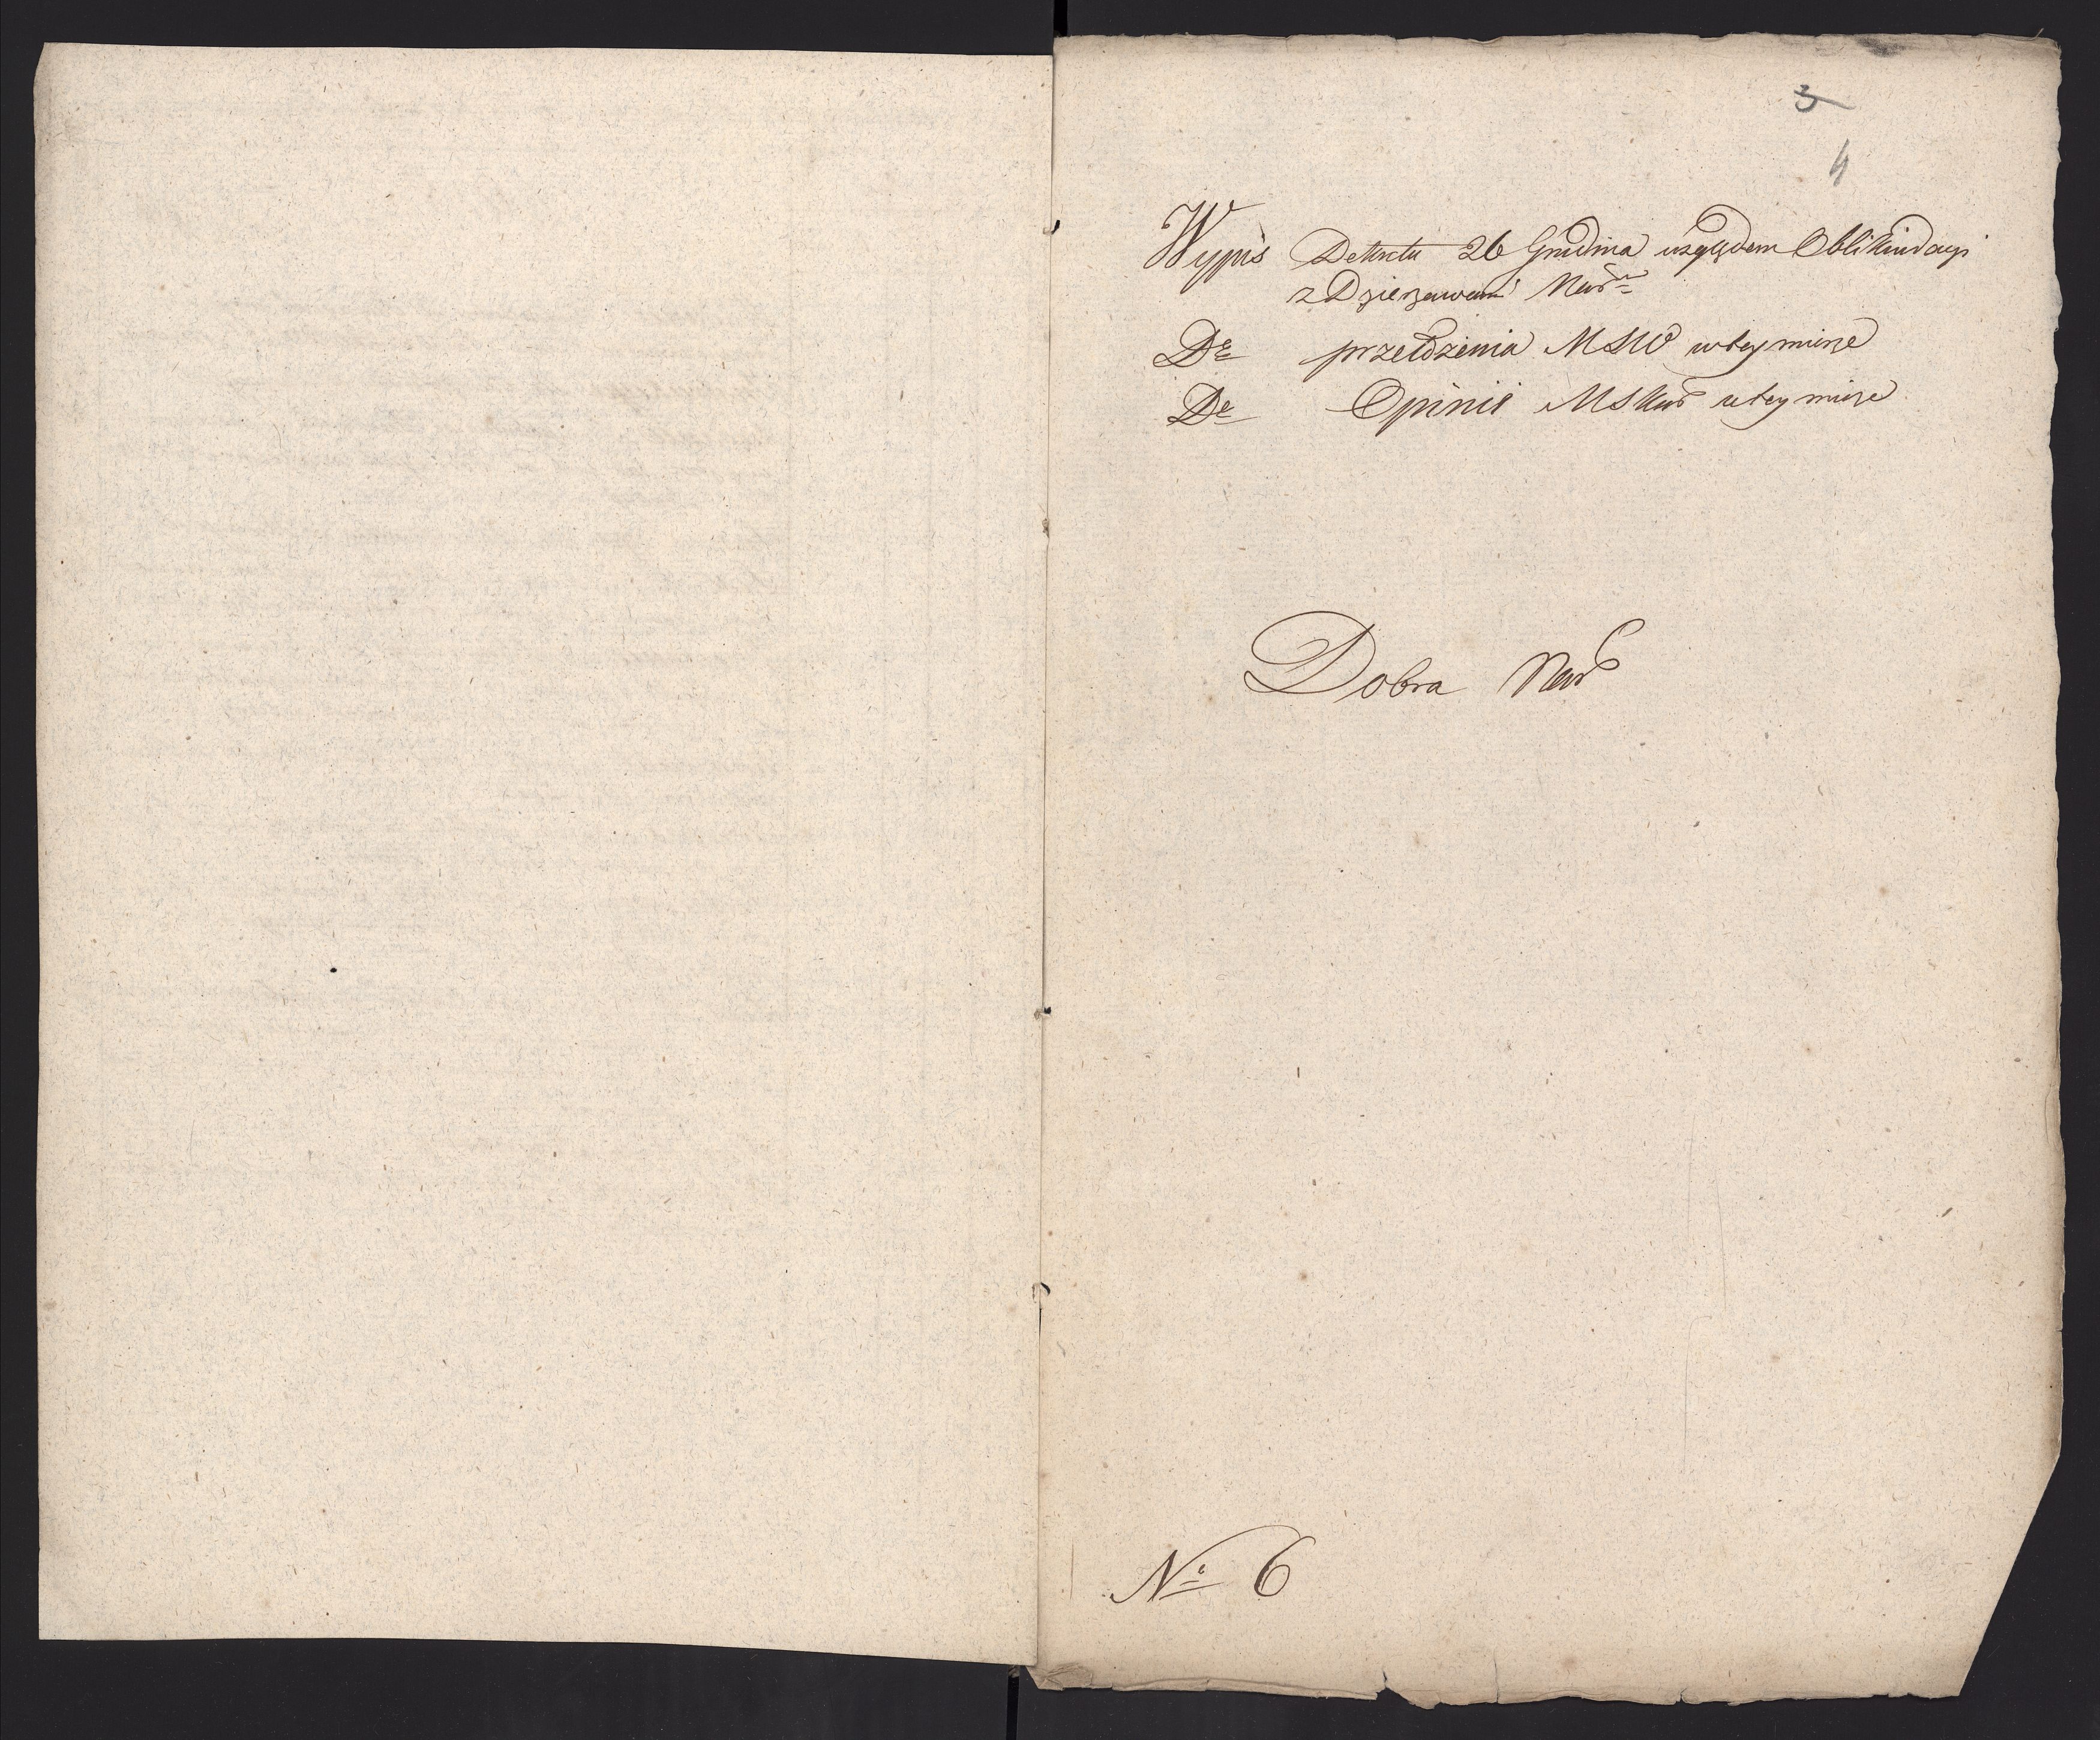 3
4
Wypis Dekretu 26 Grudnia względem Oblikwidacyi
z Dzierzawcami Nar
De przełożenia MSW w tey mierze
De Opinii MSkar w tey mierze
Dobra Nar
No 6